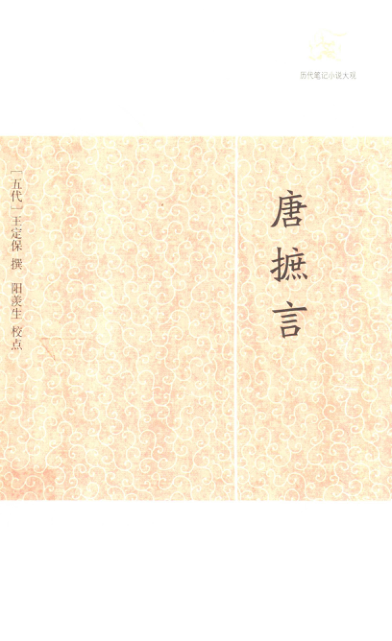 历代笔记小说大观
唐摭言
［五代］王定保 撰 阳羡生 校点